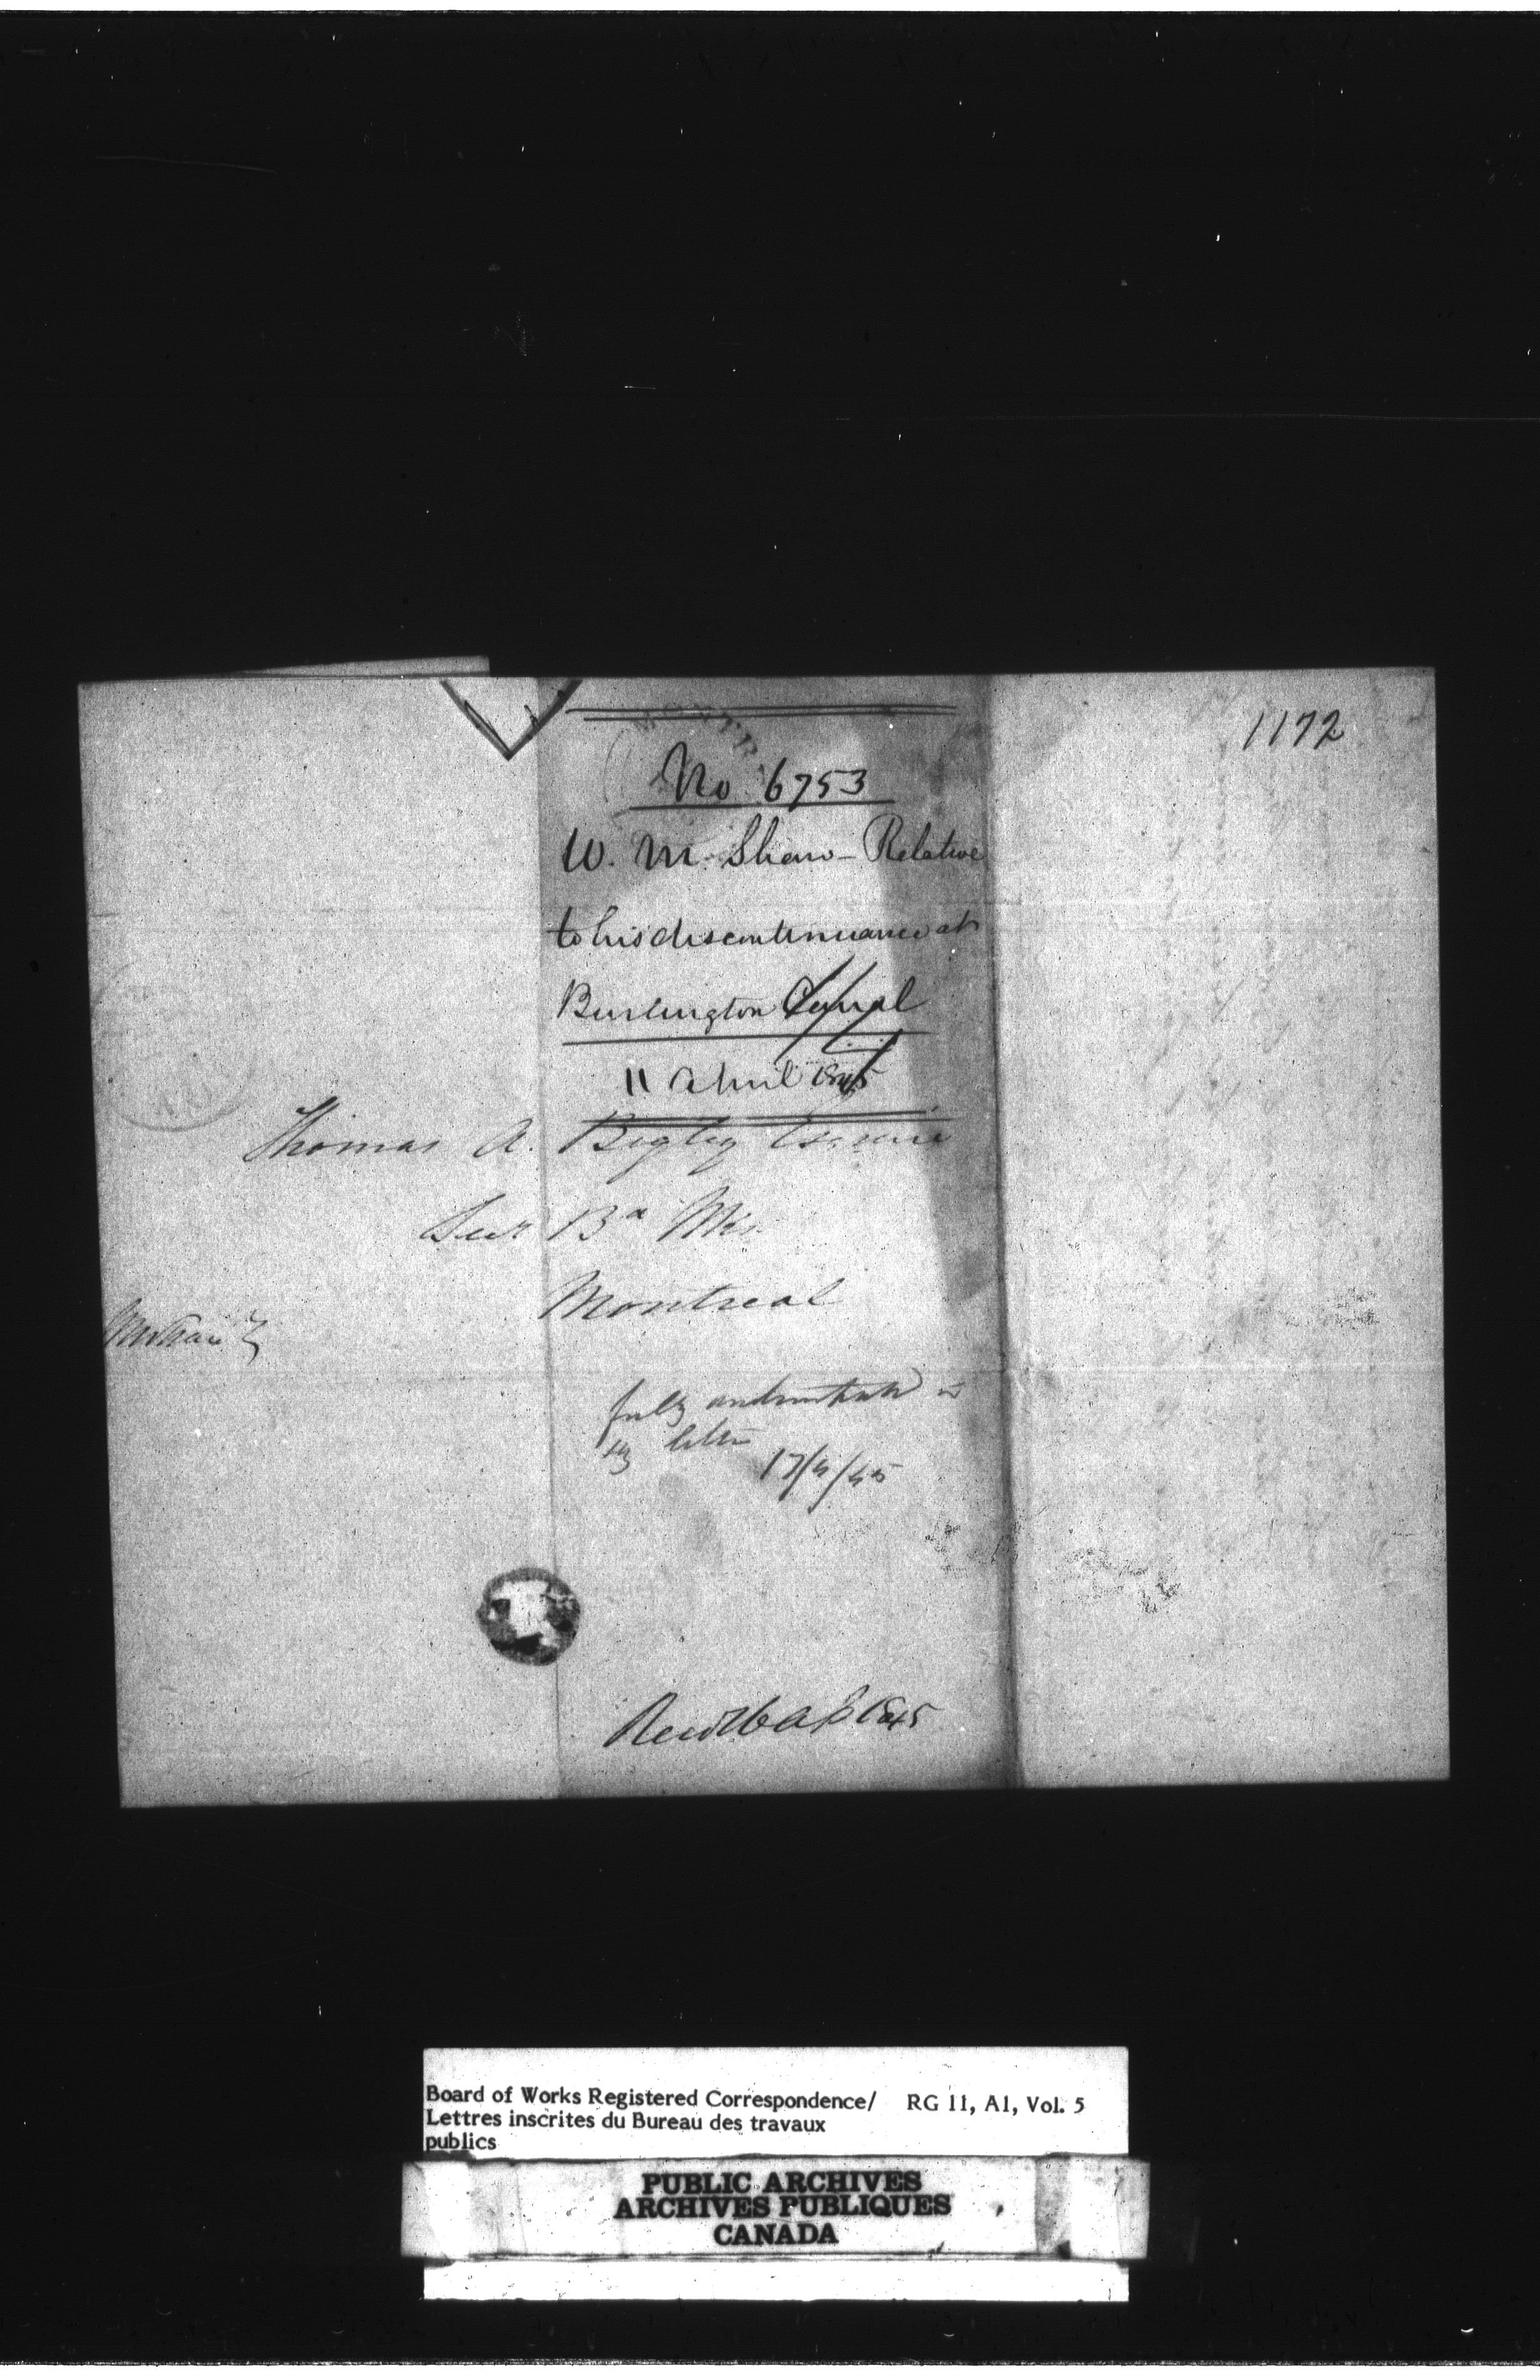 1172
No 6753
W. M. Shaw - Relative
to his discontinuance at
Burlington Canal
11 April 1845
Thomas A. Begly Esquire
Secr Bd Wks.
Montreal
fully
by letter
17/4/45
Recd 16 Ap 1845
Board of Works Registered Correspondence/ RG 11, A1, Vol. 5
Lettres inscrites du Bureau des travaux
publics
PUBLIC ARCHIVES
ARCHIVES PUBLIQUES
CANADA